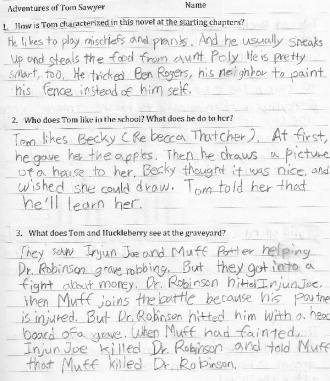 Adventures of Tom Sawyer Name
1. How is Tom characterized in this novel at the starting chapters?
He likes to play mischiefs and pranks. And he usually sneaks
up and steals the food from aunt Poly. He is pretty
smart, too. He tricked Ben Rogers, his neighbor to paint
his fence instead of him self.
2. Who does Tom like in the school? What does he do to her?
Tom likes Becky (Rebecca Thatcher). At first,
he gave her the apples. Then he draws a picture
of a house to her. Becky thought it was nice, and
wished she could draw. Tom told her that
he'll learn her.
3. What does Tom and Huckleberry see at the graveyard?
They saw Injun Joe and Muff Potter helping
Dr. Robinson grave robbing. But they got into a
fight about money. Dr. Robinson hitted Injun Joe,
then Muff joins the battle because his partne
is injured. But Dr. Robinson hitted him with a head
board of a grave. When Muff had fainted,
Injun Joe killed Dr. Robinson and told Muff
that Muff killed Dr. Robinson.